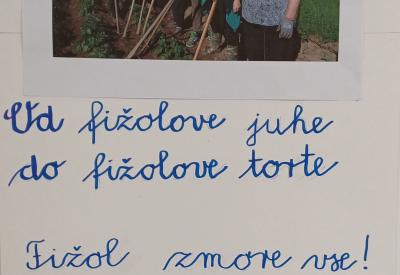 Od fižolove juhe
do fižolove torte
Fižol zmore vse!